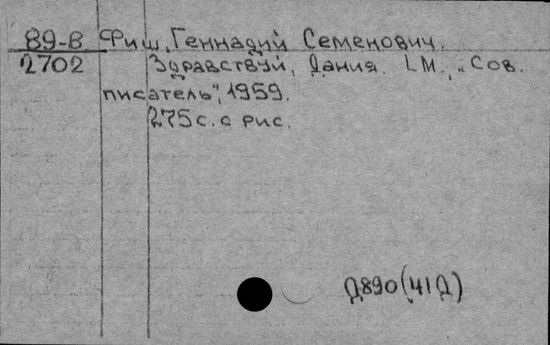 89-В Фиш, Геннадий Семенович.
2702 Здравствуй, Дания. [М., „Сов.
писатель", 1959.
275 с. с рис.
Д890(41Д)